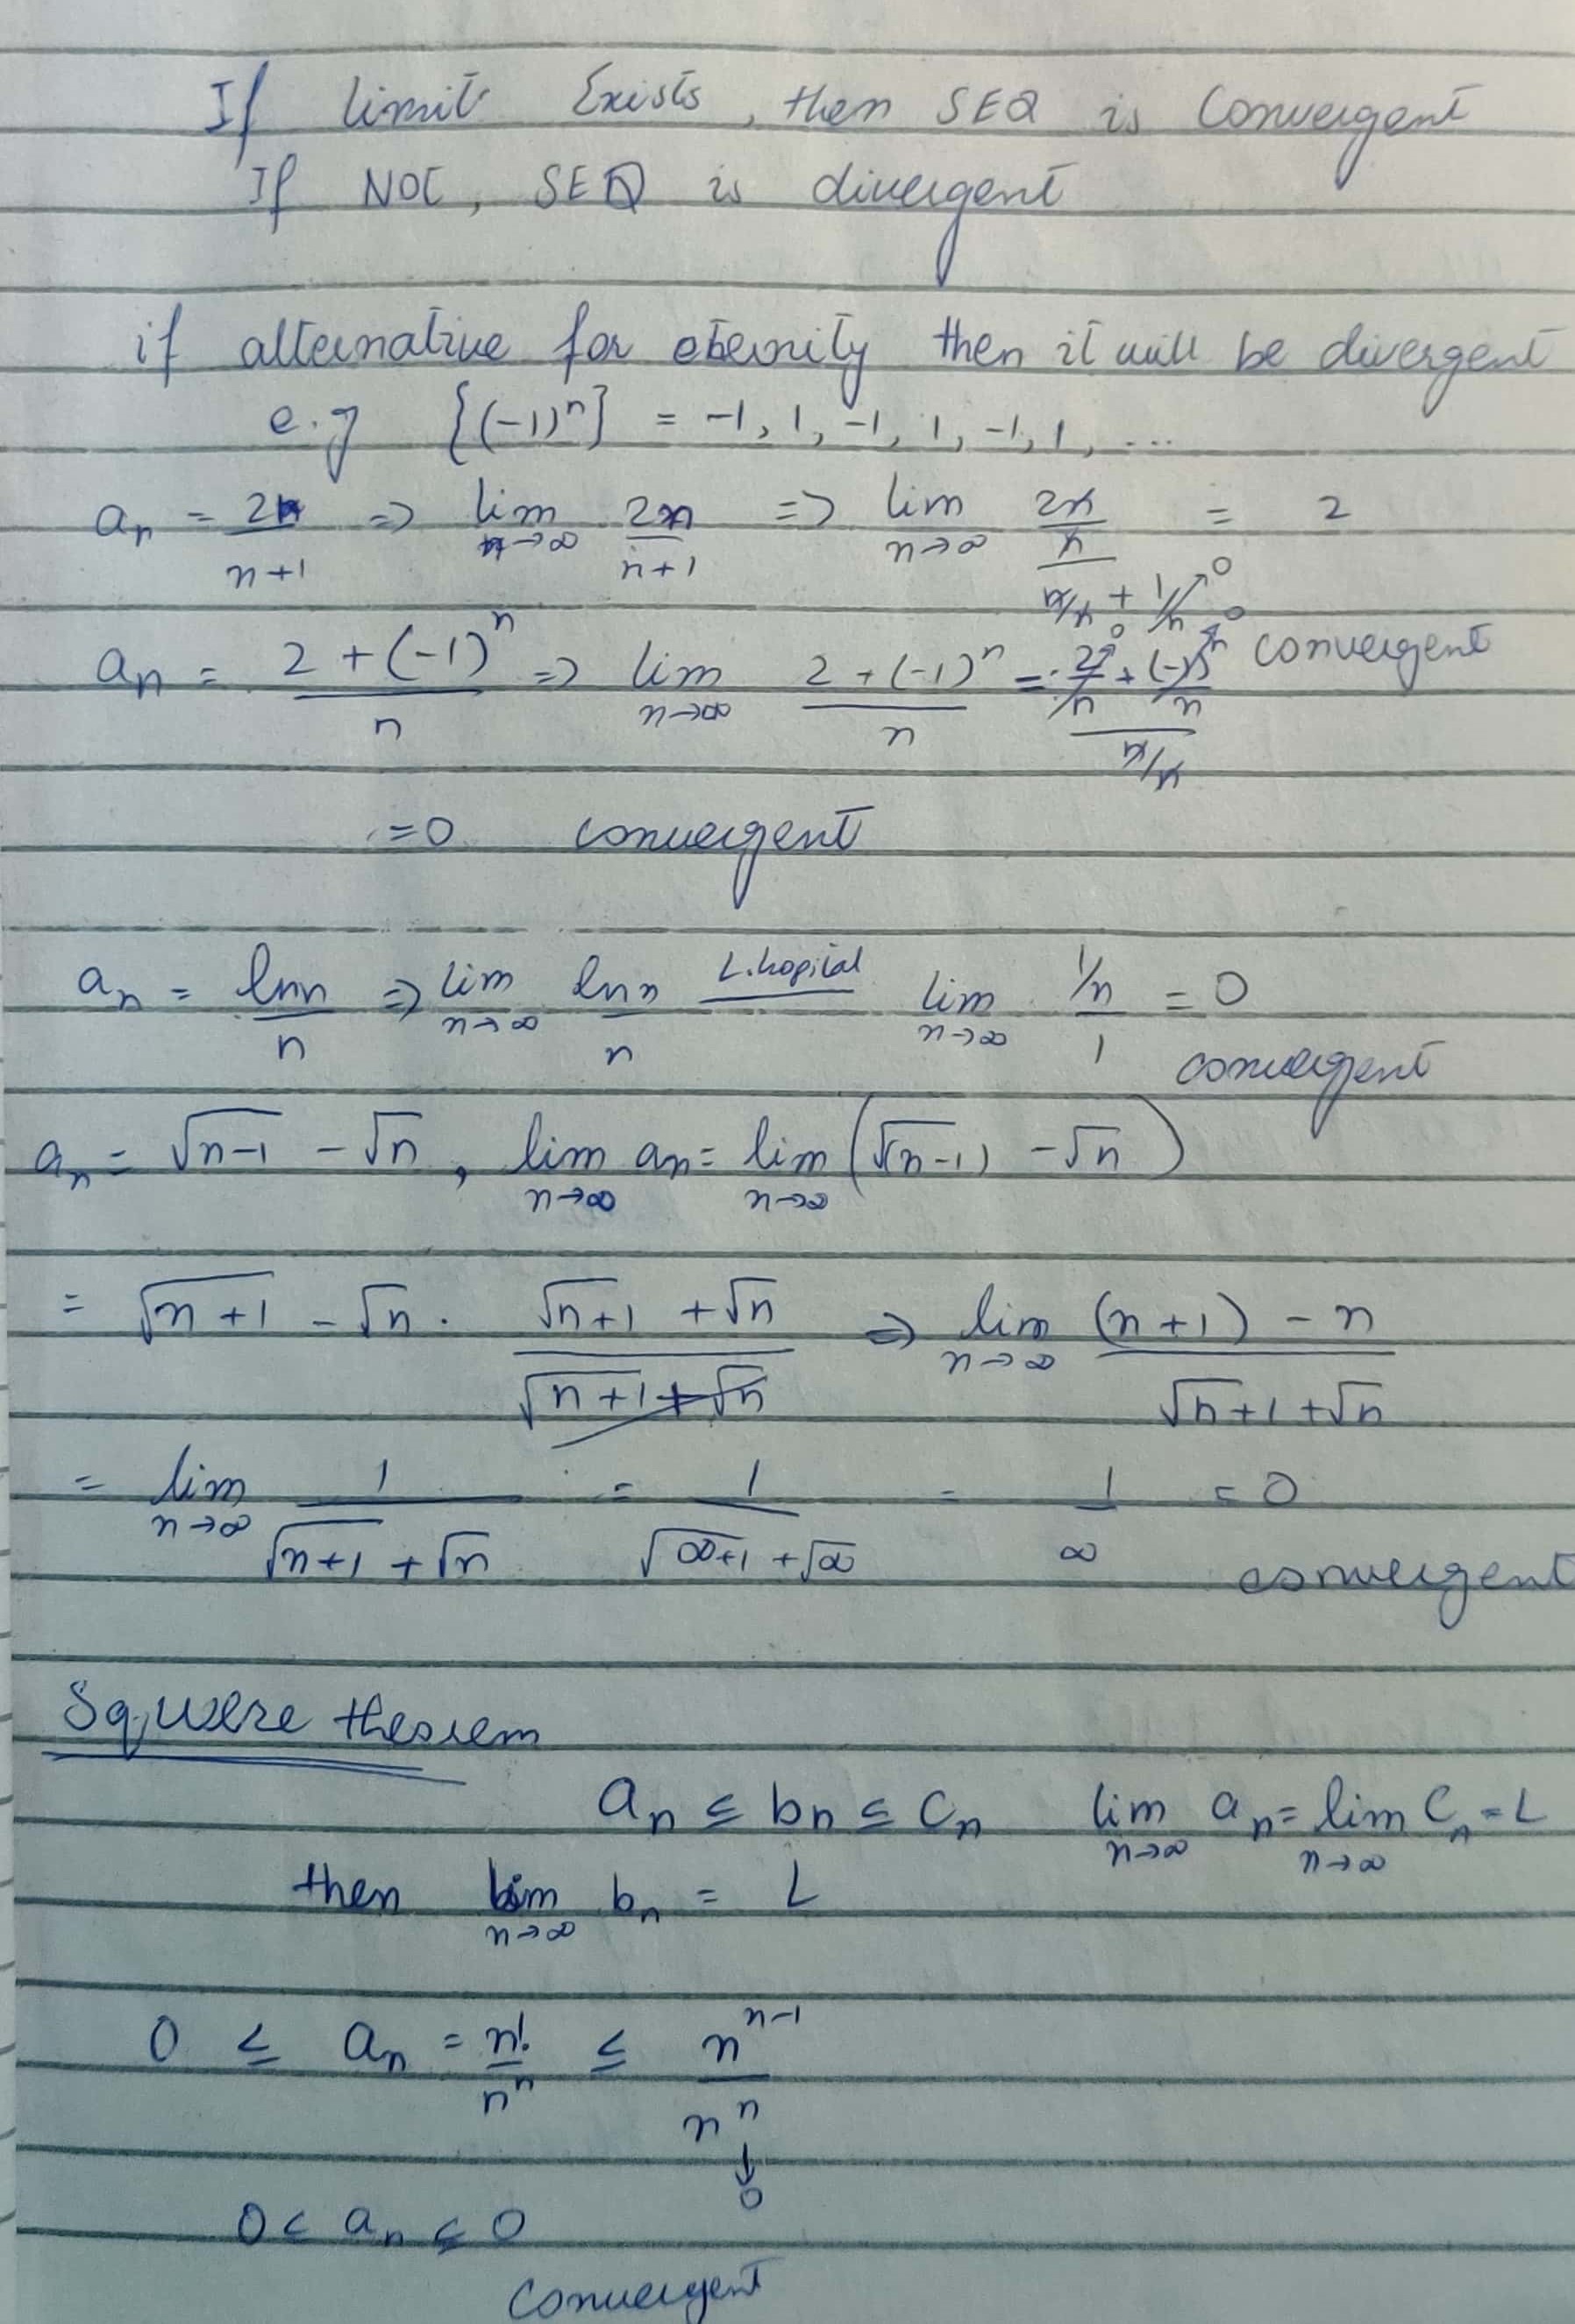 If limit Exists, then SEQ is Convergent
If NOT, SEQ is divergent
if alternative for eternity then it will be divergent
e.g {(-1)ⁿ} = -1, 1, -1, 1, -1, 1, ...
aₙ = 2n/(n+1) => lim n→∞ 2n/(n+1) => lim n→∞ (2n/n)/(n/n + 1/n → 0) = 2
convergent
aₙ = (2 + (-1)ⁿ)/n => lim n→∞ (2 + (-1)ⁿ)/n = (2/n → 0 + (-1)ⁿ/n → 0)/(n/n)
= 0 convergent
aₙ = ln n/n => lim n→∞ ln n/n L.hopital lim n→∞ (1/n)/1 = 0
convergent
aₙ = √(n-1) - √n, lim n→∞ aₙ = lim n→∞ (√(n-1) - √n)
= √(n+1) - √n · (√(n+1) + √n)/(√(n+1) + √n) => lim n→∞ ((n+1) - n)/(√(n+1) + √n)
= lim n→∞ 1/(√(n+1) + √n) = 1/(√(∞+1) + √∞) = 1/∞ = 0
convergent
Sqweere theorem
aₙ ≤ bₙ ≤ Cₙ lim n→∞ aₙ = lim n→∞ Cₙ = L
then lim n→∞ bₙ = L
0 ≤ aₙ = n!/nⁿ ≤ nⁿ⁻¹/nⁿ
↓
0
0 < aₙ ≤ 0
Convergent